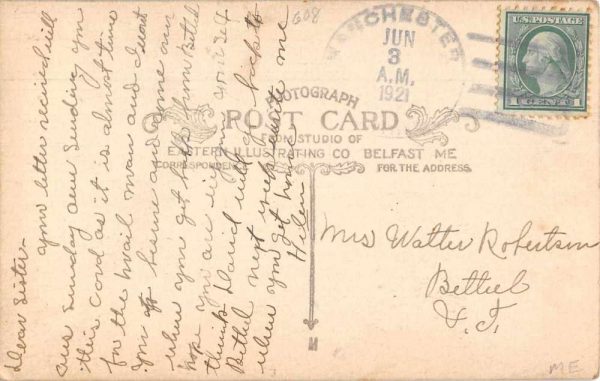 608
MANCHESTER
JUN
3
A.M.
1921
U.S. POSTAGE
1 CENT 1
PHOTOGRAPH
POST CARD
FROM STUDIO OF
EASTERN ILLUSTRATING CO BELFAST ME
CORRESPONDENCE
FOR THE ADDRESS.
Dear Sister-
your letter received will
Sunday and sending you
this card as it is almost time
for the mail man and I want
you to hurry and come over
when you get back from Bethel
hope you are
think David will go back to
Bethel next week write me
when you get home
Helen
Mrs Walter Robertson
Bethel
V.T.
ME